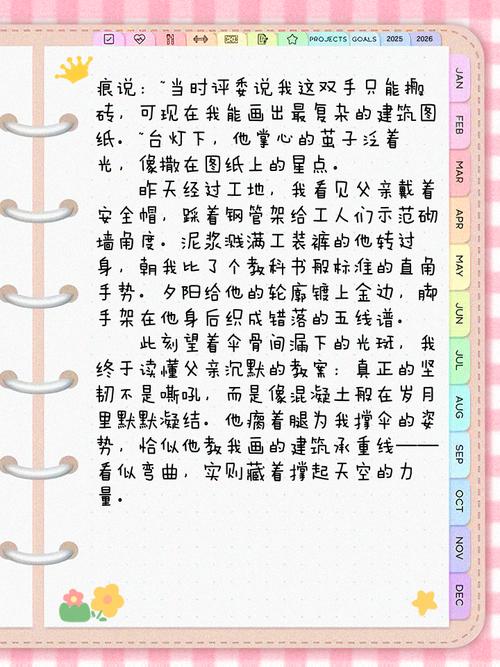 PROJECTS GOALS 2025 2026
痕说：“当时评委说我这双手只能搬
砖，可现在我能画出最复杂的建筑图
纸。”台灯下，他掌心的茧子泛着
光，像撒在图纸上的星点。
昨天经过工地，我看见父亲戴着
安全帽，踩着钢管架给工人们示范砌
墙角度。泥浆溅满工装裤的他转过
身，朝我比了个教科书般标准的直角
手势。夕阳给他的轮廓镀上金边，脚
手架在他身后织成错落的五线谱。
此刻望着伞骨间漏下的光斑，我
终于读懂父亲沉默的教案：真正的坚
韧不是嘶吼，而是像混凝土般在岁月
里默默凝结。他瘸着腿为我撑伞的姿
势，恰似他教我画的建筑承重线——
看似弯曲，实则藏着撑起天空的力
量。
JAN
FEB
MAR
APR
MAY
JUN
JUL
AUG
SEP
OCT
NOV
DEC